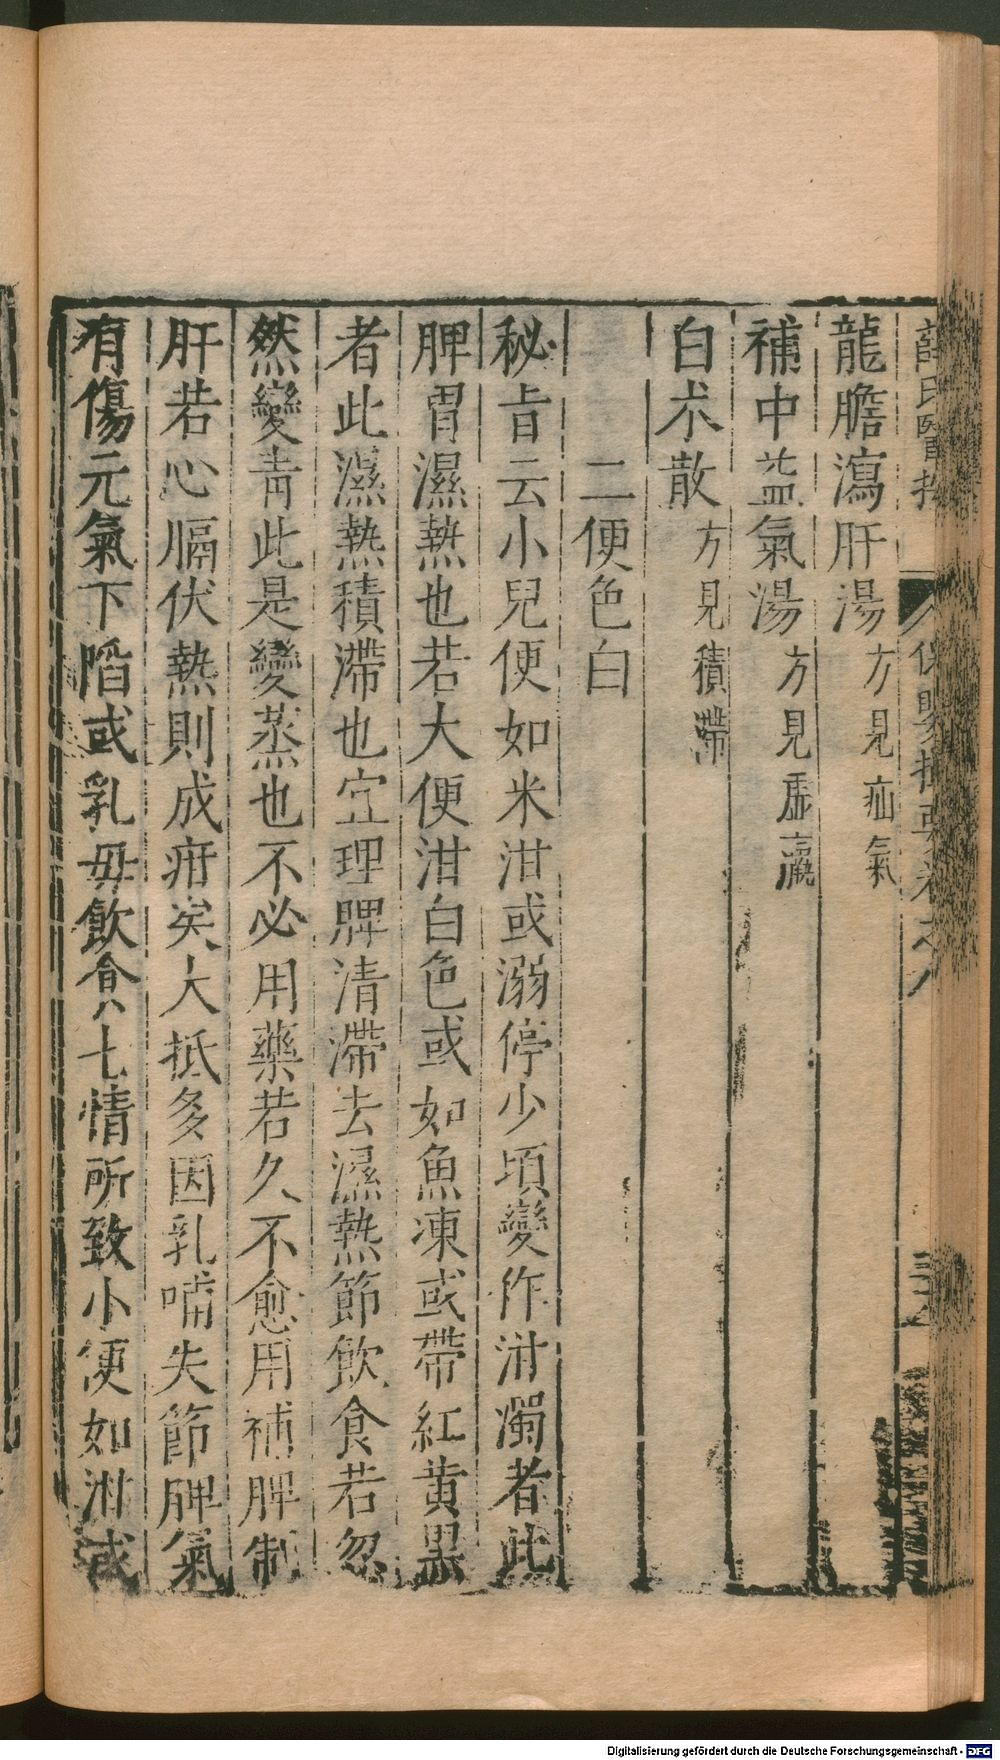 薛氏醫按 保嬰撮要卷之八
龍膽瀉肝湯 方見疝氣
補中益氣湯 方見虛羸
白朮散 方見積滯
二便色白
秘旨云小兒便如米泔或溺停少頃變作泔濁者此
脾胃濕熱也若大便泔白色或如魚凍或帶紅黃黑
者此濕熱積滯也宜理脾清滯去濕熱節飲食若忽
然變青此是變蒸也不必用藥若久不愈用補脾制
肝若心膈伏熱則成疳矣大抵多因乳哺失節脾氣
有傷元氣下陷或乳母飲食七情所致小便如泔或
Digitalisierung gefördert durch die Deutsche Forschungsgemeinschaft - DFG